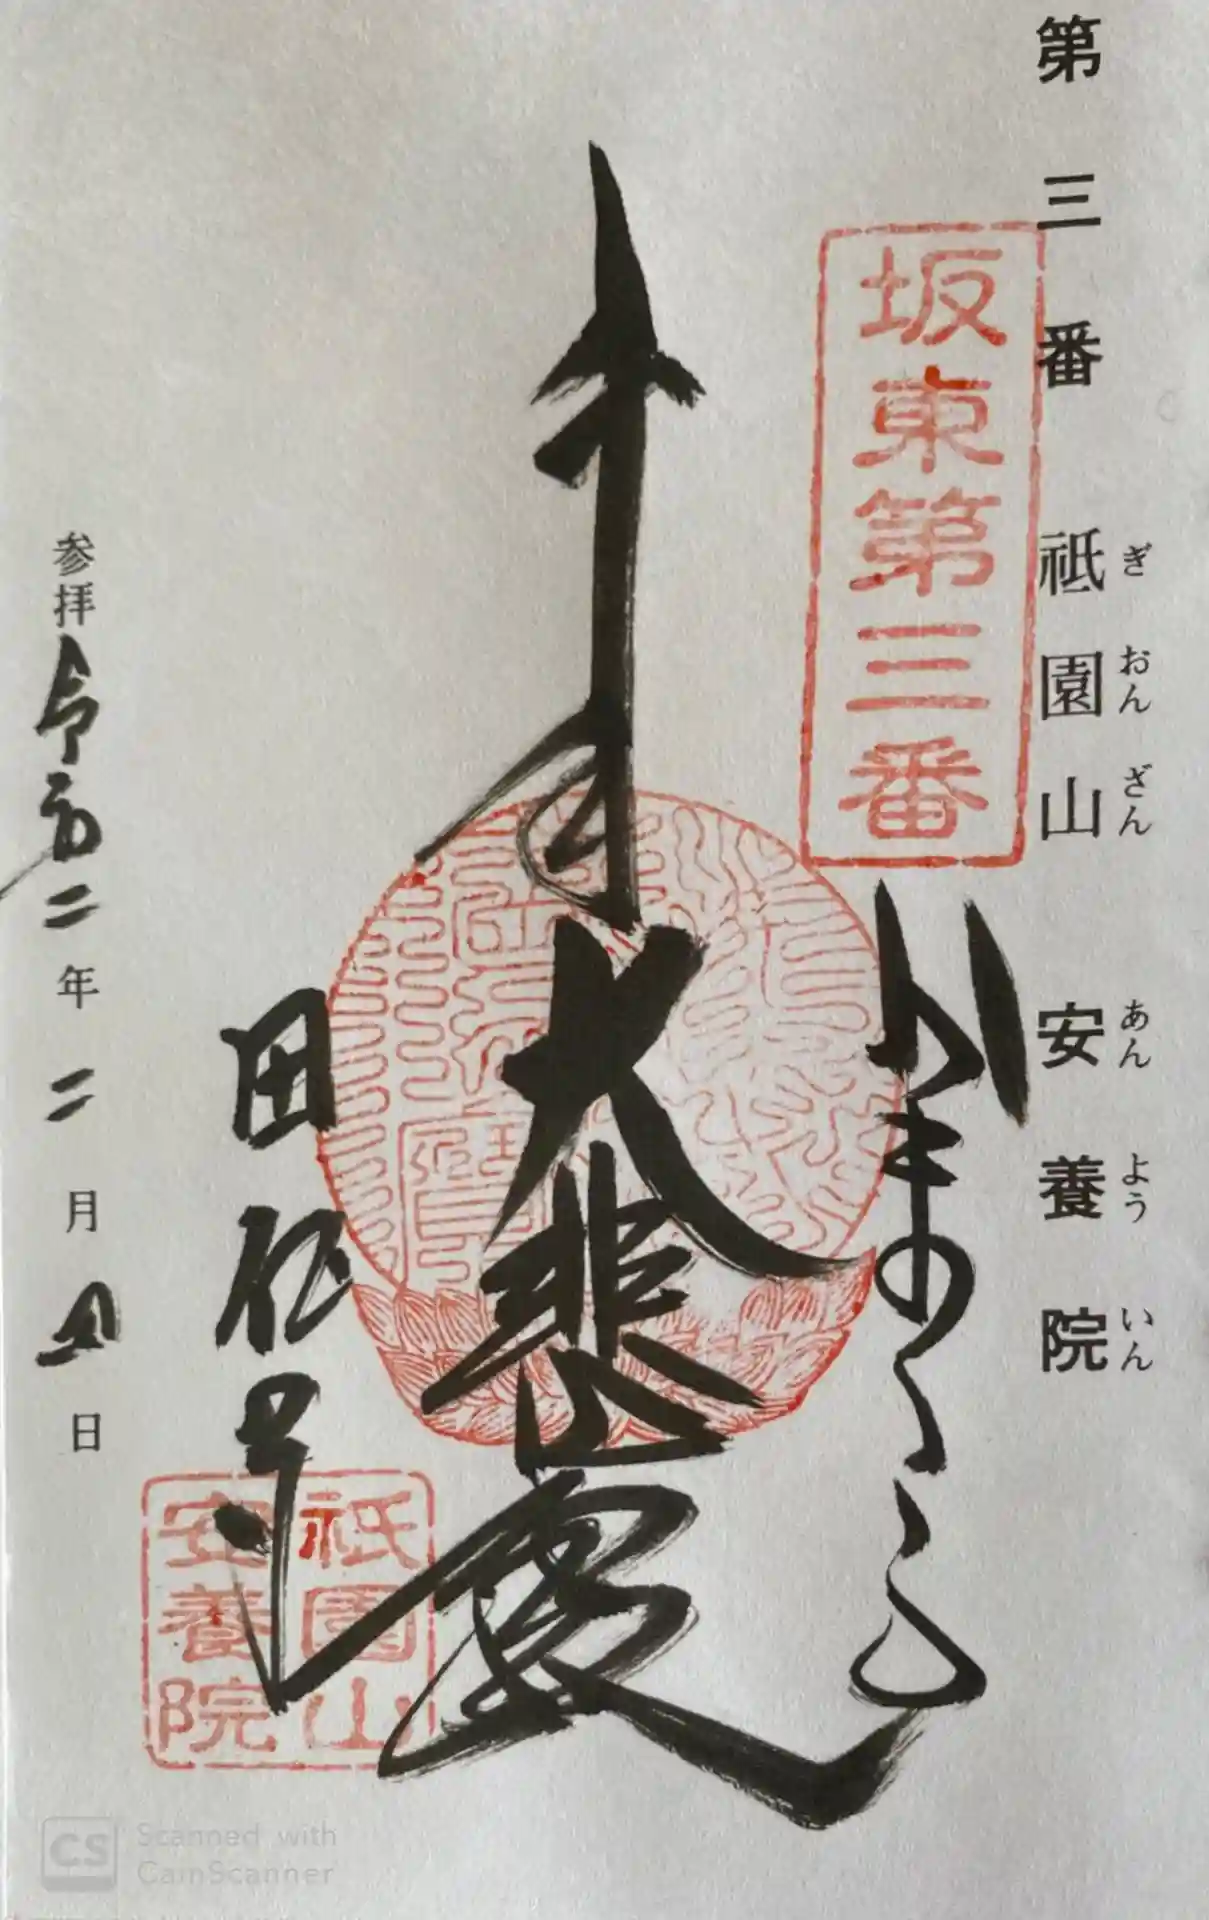 第三番 祇園山 安養院
ぎおんざん あんよういん
坂東第三番
かまくら
大悲殿
田代寺
祇園山
安養院
参拝令和二年二月四日
CS Scanned with
CamScanner